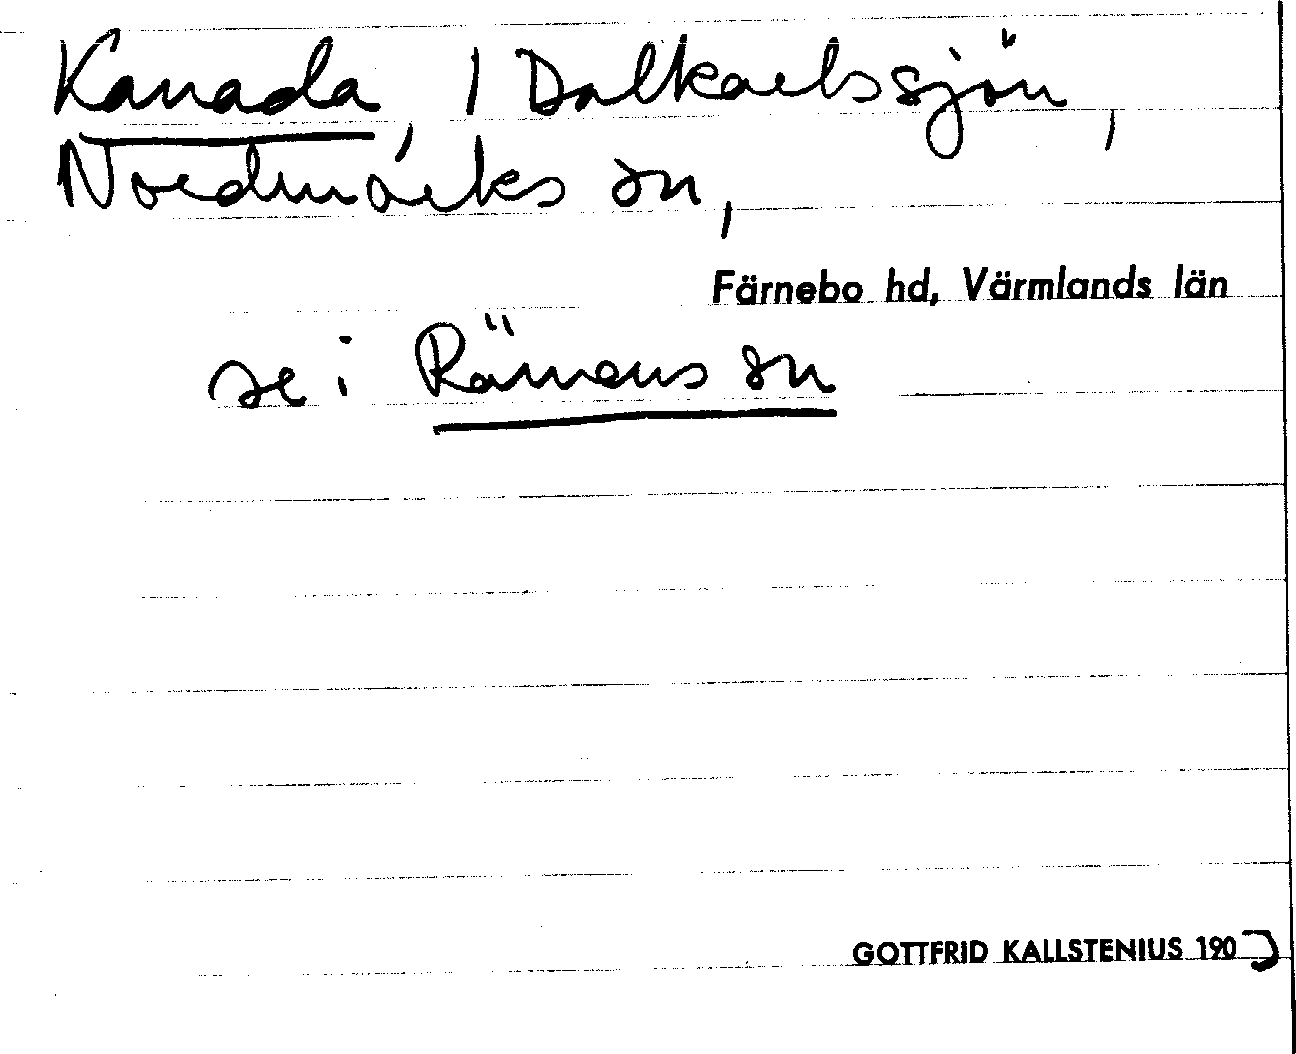 Kanada, 1 Dalkarlssjön,
Nordmarks sn,
Färnebo hd, Värmlands län
se: Rämens sn
GOTTFRID KALLSTENIUS 190